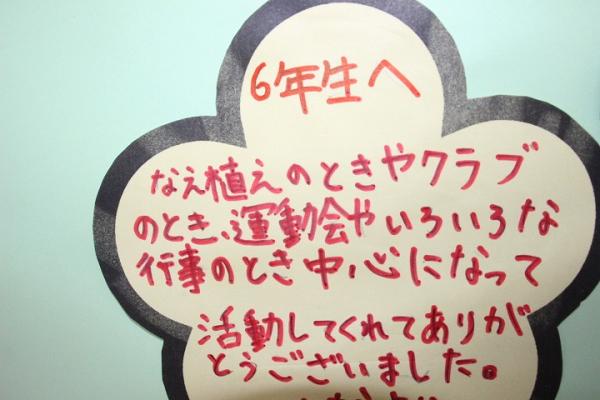 6年生へ
なえ植えのときやクラブ
のとき、運動会やいろいろな
行事のとき中心になって
活動してくれてありが
とうございました。